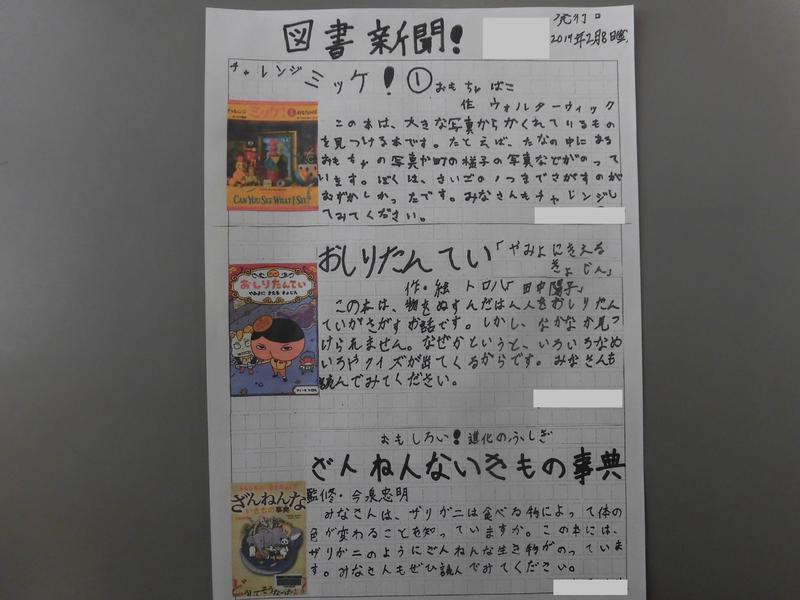 図書新聞!
発行日
2017年2月8日
チャレンジ ミッケ!①おもちゃばこ
作 ウォルターウィック
この本は、大きな写真からかくれているもの
を見つける本です。たとえば、たなの中にある
おもちゃの写真や町の様子の写真などがのって
います。ぼくは、さいごの1つまでさがすのが
むずかしかったです。みなさんもチャレンジし
てみてください。
チャレンジ
ミッケ!
CAN YOU SEE WHAT I SEE?
おしりたんてい「やみよにきえる
きょじん」
作・絵 トロル「田中陽子」
この本は、物をぬすんだはん人をおしりたん
ていがさがすお話です。しかし、なかなか見つ
けられません。なぜかというと、いろいろなめ
いろやクイズが出てくるからです。みなさんも
読んでみてください。
おしりたんてい
やみよに きえる きょじん
おもしろい!進化のふしぎ
ざんねんないきもの事典
監修・今泉忠明
みなさんは、ザリガニは食べる物によって体の
色が変わることを知っていますか。この本には、
ザリガニのようにざんねんな生き物がのっていま
す。みなさんもぜひ読んでみてください。
ざんねんな
いきもの事典